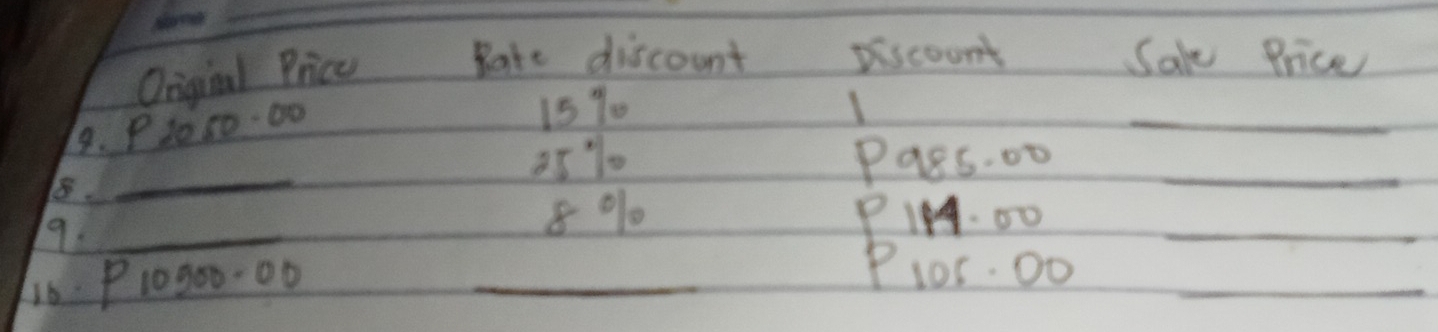 Original Price Rate discount Discount Sale Price
9. P2050.00 15% 1
8. 25% P985.00
9. 8% P114.00
10. P10500.00 P105.00